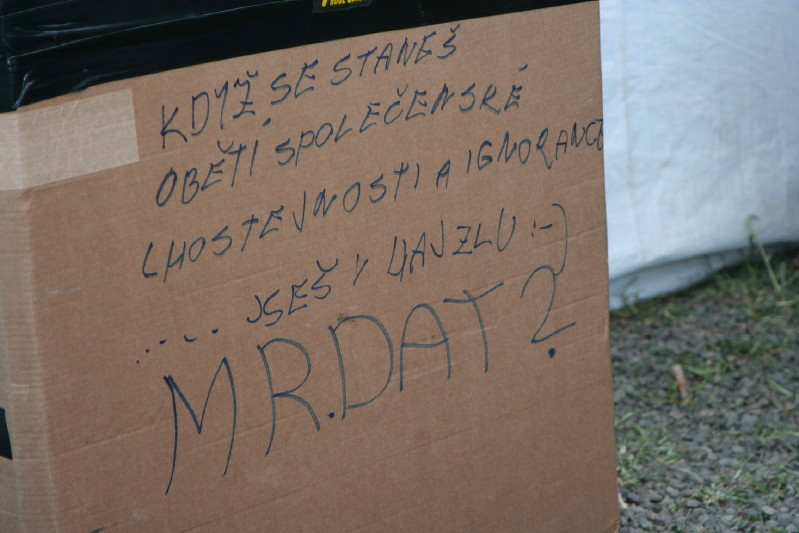 KDYŽ SE STANEŠ
OBĚTÍ SPOLEČENSKÉ
LHOSTEJNOSTI A IGNORANCE
..... JSEŠ V HAJZLU :-)
MR.DAT?